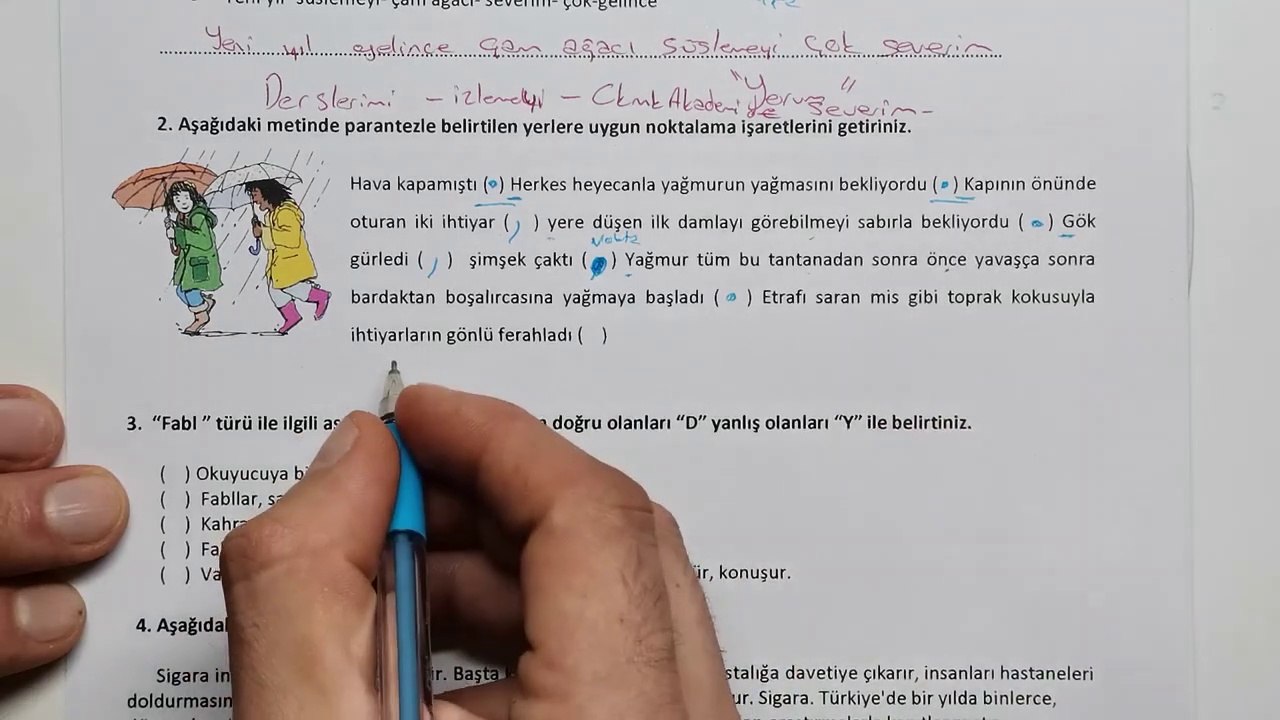 Yeni yıl- süslemeyi- çam ağacı- severim- çok-gelince
Yeni yıl gelince çam ağacı süslemeyi çok severim
"Yorum"
Derslerimi - izlemeyi - Ckmk Akademi de severim -
2. Aşağıdaki metinde parantezle belirtilen yerlere uygun noktalama işaretlerini getiriniz.
Hava kapamıştı (.) Herkes heyecanla yağmurun yağmasını bekliyordu (.) Kapının önünde
oturan iki ihtiyar (,) yere düşen ilk damlayı görebilmeyi sabırla bekliyordu (.) Gök
Nokta
gürledi (,) şimşek çaktı (.) Yağmur tüm bu tantanadan sonra önce yavaşça sonra
bardaktan boşalırcasına yağmaya başladı (.) Etrafı saran mis gibi toprak kokusuyla
ihtiyarların gönlü ferahladı ( )
3. “Fabl ” türü ile ilgili doğru olanları “D” yanlış olanları “Y” ile belirtiniz.
( ) Okuyucuya
( ) Fabllar,
( )
( )
( ) konuşur.
4.
Sigara Başta davetiye çıkarır, insanları hastaneleri
Sigara. Türkiye'de bir yılda binlerce,